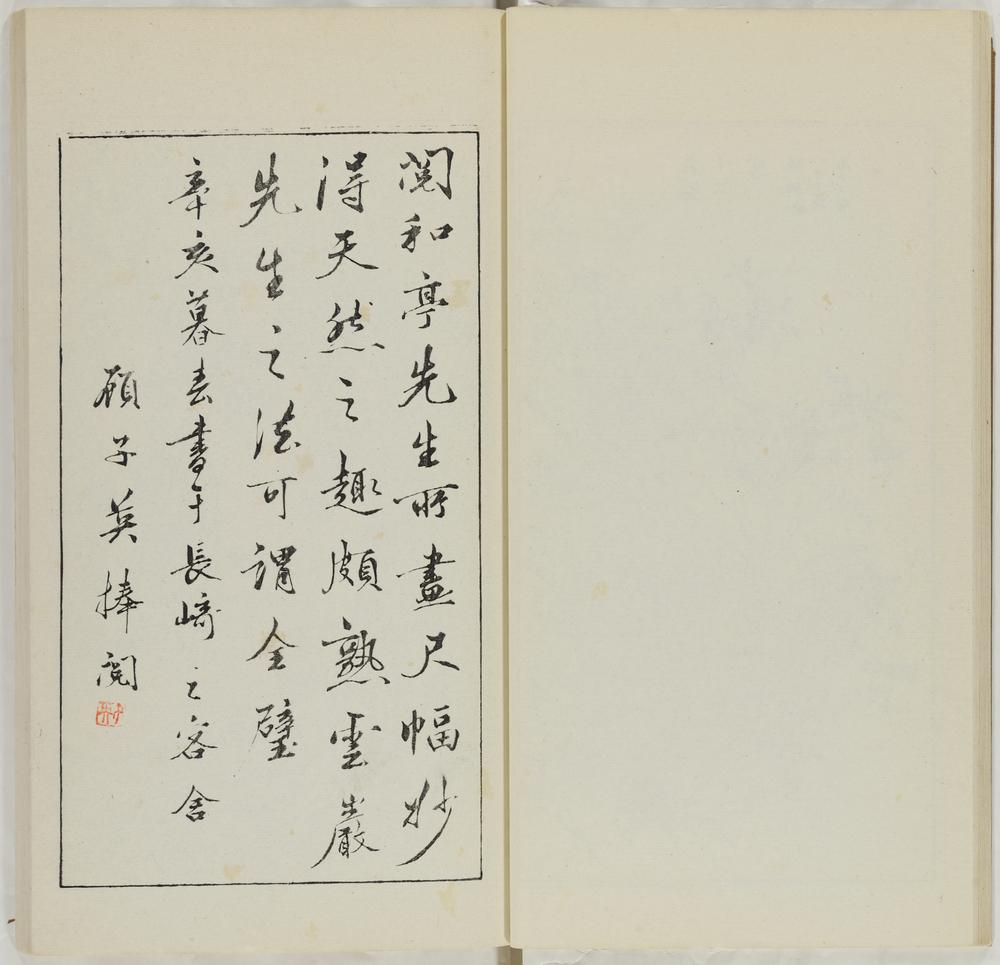 閲和亭先生所畫尺幅妙
得天然之趣頗熟雲巖
先生之法可謂全璧
辛亥暮春書于長崎之客舍
顧子英捧閲